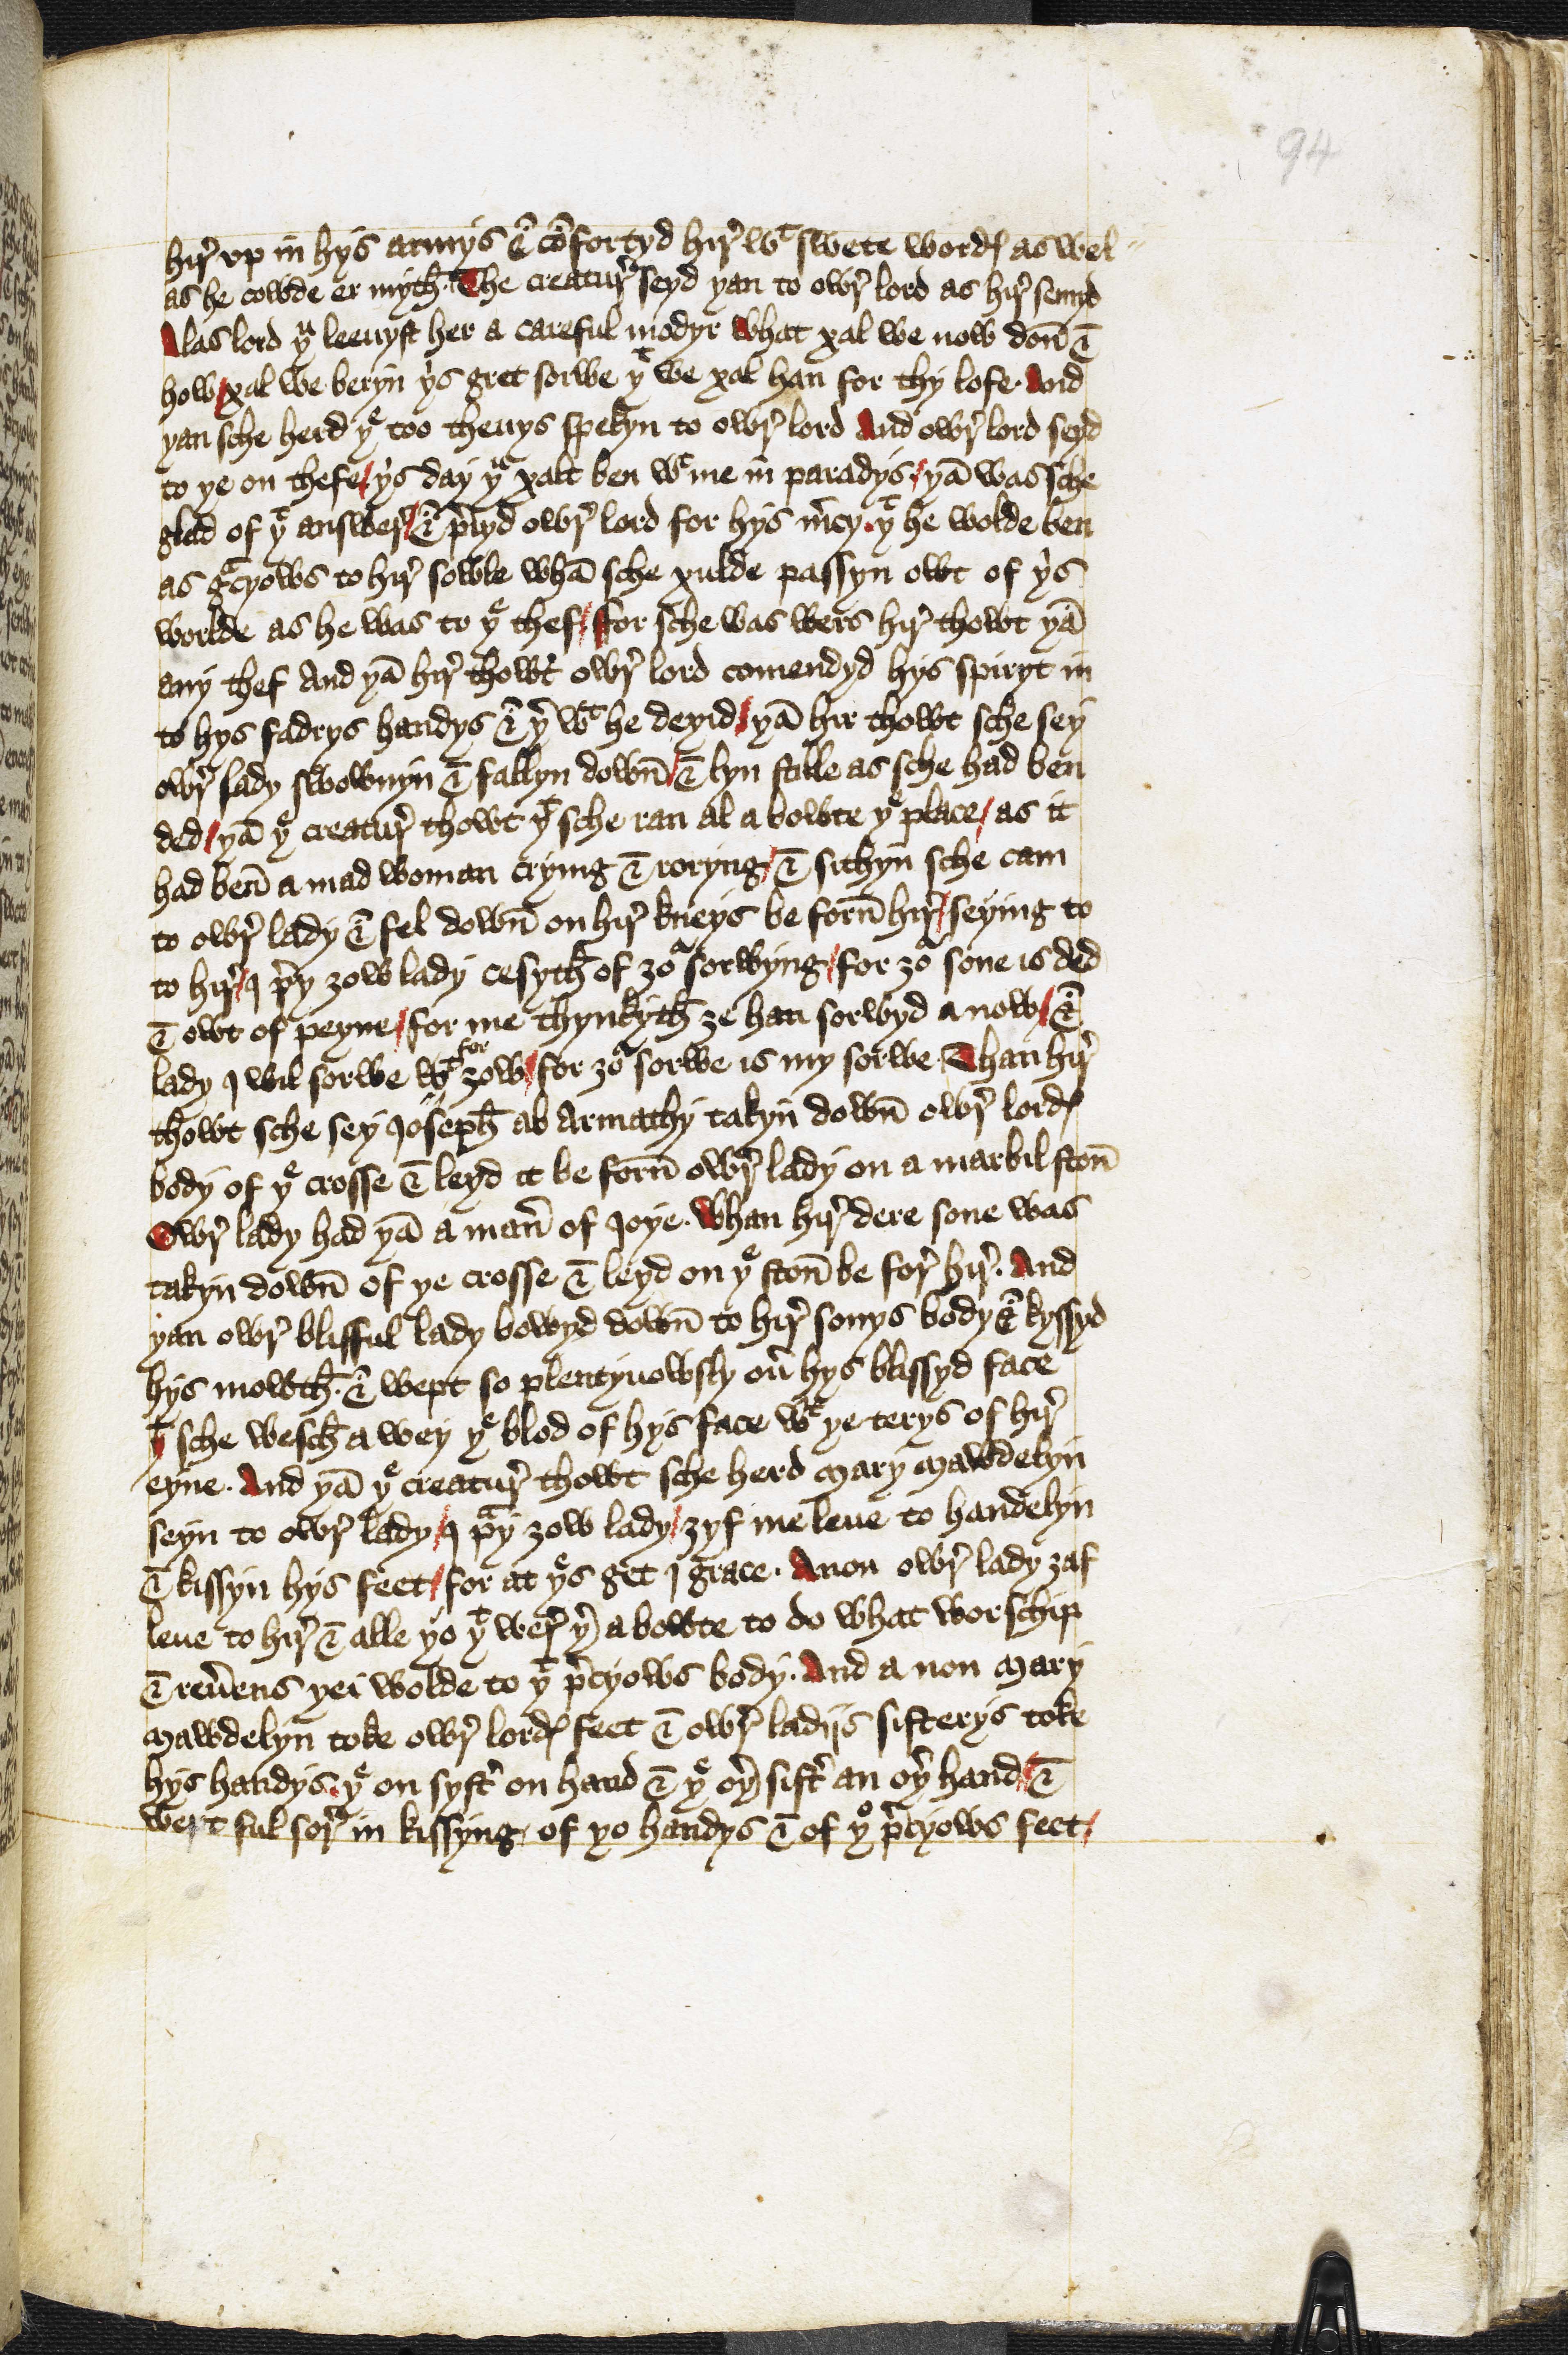 94
hir̛ vp in hys armys & cōfortyd hir̛ wᵗ swete wordꝭ as wel
as he cowde er myth. The creatur̛ seyd yan to owr̛ lord as hir̛ semyd
Alas lord yᵘ leeuyst her a careful modyr What xal we now don̄ &
how / xal we beryn yⁱs gret sorwe yᵗ we xal han for thy lofe. And
yan sche herd yᵉ too theuys spekyn to owr̛ lord And owr̛ lord seyd
to ye on thefe / yⁱs day yᵘ xalt ben wᵗ me in paradys / yā was sche
glad of yᵗ answer̛ / & p̄iyd owr̛ lord for hys m̄cy. yᵗ he wolde ben
as gᵃcyows to hir̛ sowle whā sche xulde passyn owt of yⁱs
worlde as he was to yᵉ thef / for sche was wers hir̛ thowt yā
any thef And yā hir̛ thowt owr̛ lord comendyd hys spiryt in
to hys fadrys handys & yʳ wᵗ he deyid / yā hir thowt sche sey
owr̛ lady swownyn & fallyn down̄ / & lyn stille as sche had ben
ded / yā yᵉ creatur̛ thowt yᵗ sche ran al a bowte yᵉ place / as it
had ben̄ a mad woman crying & roryng / & sithyn sche cam
to owr̛ lady & fel down̄ on hir̛ kneys be forn̄ hir̛ / seying to
to hir̛ / I p̄y ȝow lady cesyth of ȝoʳ sorwyng / for ȝoʳ sone is ded
& owt of peyne / for me thynkyth ȝe han sorwyd a now / &
lady I wil sorwe wᵗ for ȝow / for ȝoʳ sorwe is my sorwe. Than hir̛
thowt sche sey Joseph ab Armathy takyn down̄ owr̛ lordꝭ
body of yᵉ crosse & leyd it be forn̄ owr̛ lady on a marbil ston̄
Owr̛ lady had yā a man̄ of Joye. Whan hir̛ dere sone was
takyn down̄ of ye crosse & leyd on yᵉ ston̄ be for̛ hir̛. And
yan owr̛ blisful lady bowyd down̄ to hir̛ sonys body & kyssyd
hys mowth. & wept so plentyuowsly ou̅ hys blissyd face
yᵗ sche wesch a wey yᵉ blod of hys face wᵗ ye terys of hir̛
eyne. And yā yᵉ creatur̛ thowt sche herd Mary Mawdelyn
seyn to owr̛ lady / I pᵃy ȝow lady / ȝyf me leue to handelyn
& kissyn hys feet / for at yᵉs get I grace. Anon owr̛ lady ȝaf
leue to hir̛ & alle yo yᵗ wer̛ yʳ a bowte to do what worschip
& reu̅ens yei wolde to yᵗ p̄cyows body. And a non Mary
Mawdelyn toke owr̛ lordꝭ feet & owr̛ ladijs sisterys toke
hys handys. yᵉ on syst̄ on hand & yᵉ oyʳ sist̄ an oyʳ hand / &
wept ful sor̛ in kissyng of yo handys & of yᵒ p̄cyows feet /